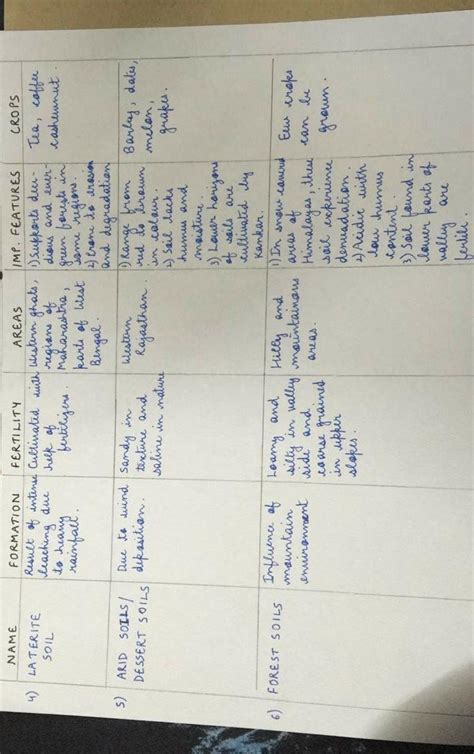 NAME
FORMATION
FERTILITY
AREAS
IMP. FEATURES
CROPS
4) LATERITE
SOIL
Result of intense
leaching due
to heavy
rainfall.
Cultivated with
help of
fertilizers.
Western ghats,
regions of
Maharashtra,
parts of West
Bengal.
1) Supports deci-
duous and ever-
green forests in
some regions.
2) Prone to erosion
and degradation
Tea, coffee
cashewnut.
5) ARID SOILS/
DESSERT SOILS
Due to wind
deposition.
Sandy in
texture and
saline in nature
Western
Rajasthan.
1) Range from
red to brown
in colour.
2) Soil lacks
humus and
moisture.
3) Lower horizons
of soils are
cultivated by
Kankar.
Barley, dates,
melon,
grapes.
6) FOREST SOILS
Influence of
mountain
environment
Loamy and
silty in valley
side and
coarse grained
in upper
slopes.
Hilly and
mountainous
areas.
1) In snow covered
areas of
Himalayas, these
soil experience
denudation.
2) Acidic with
low humus
content.
3) Soil found in
lower parts of
valley are
fertile
Few crops
can be
grown.